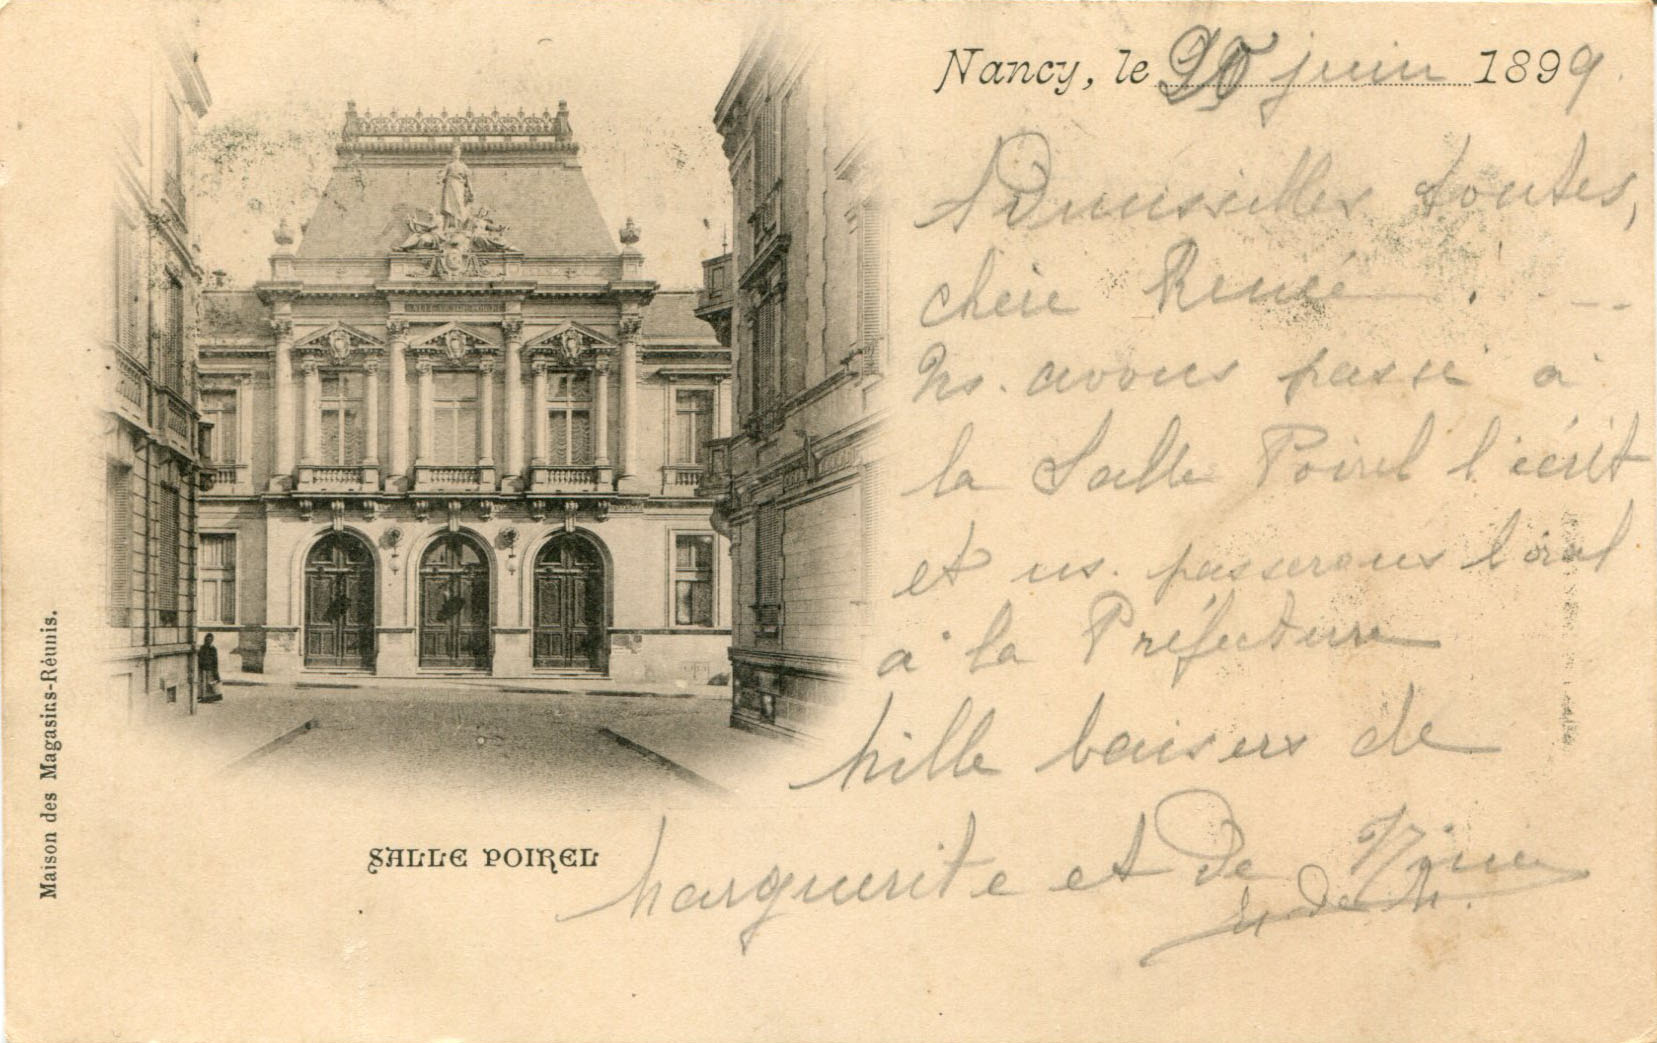 Nancy, le 20 juin 1899.
Admissibles toutes,
chère Renée !
Ns. avons passé à
la Salle Poirel l'écrit
et ns. passerons l'oral
à la Préfecture
Mille baisers de
Marguerite et de
SALLE POIREL
Maison des Magasins-Réunis.